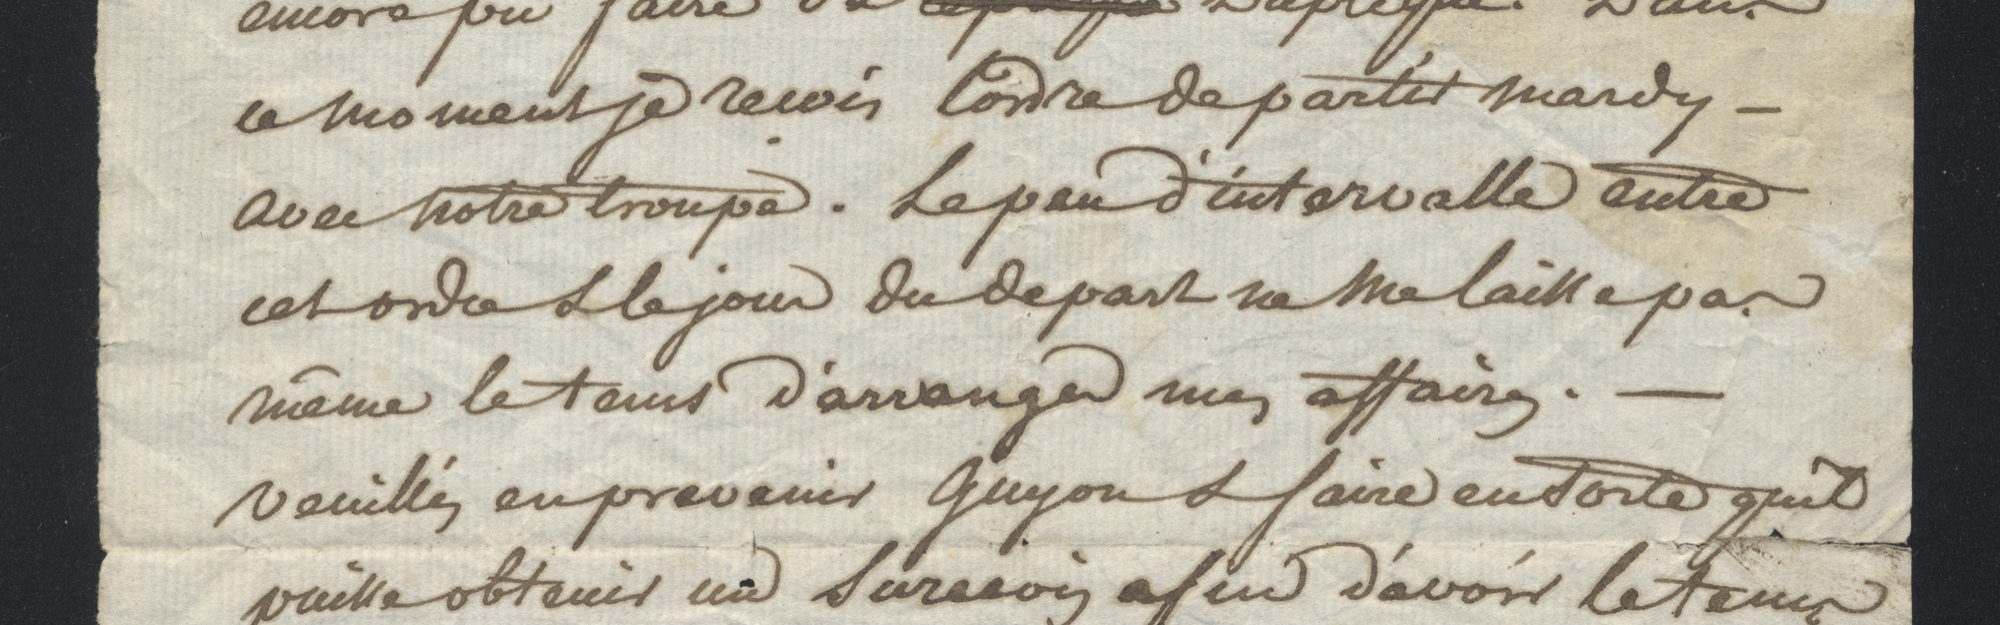 encore pu faire de Duplique. Dans
ce moment je recois l'ordre de partir mardy –
avec notre troupe. Le peu d'intervalle entre
cet ordre & le jour du depart ne me laisse pas
même le tems d'arranger mes affaires. —
veuillés en prevenir Guyon & faire ensorte qu'il
puisse obtenir un surcois afin d'avoir le tems